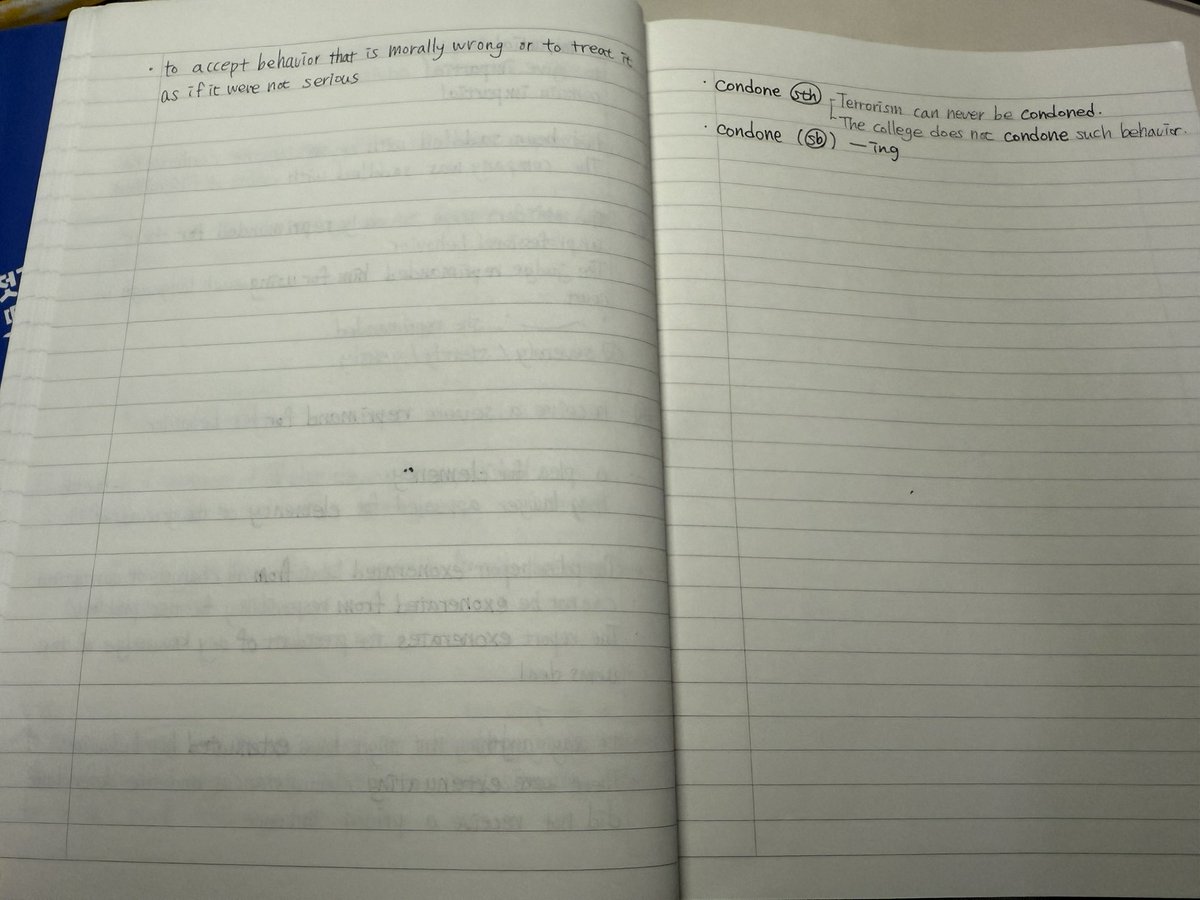 · to accept behavior that is morally wrong or to treat it
as if it were not serious
· condone sth Terrorism can never be condoned.
The college does not condone such behavior.
· condone (sb) —ing